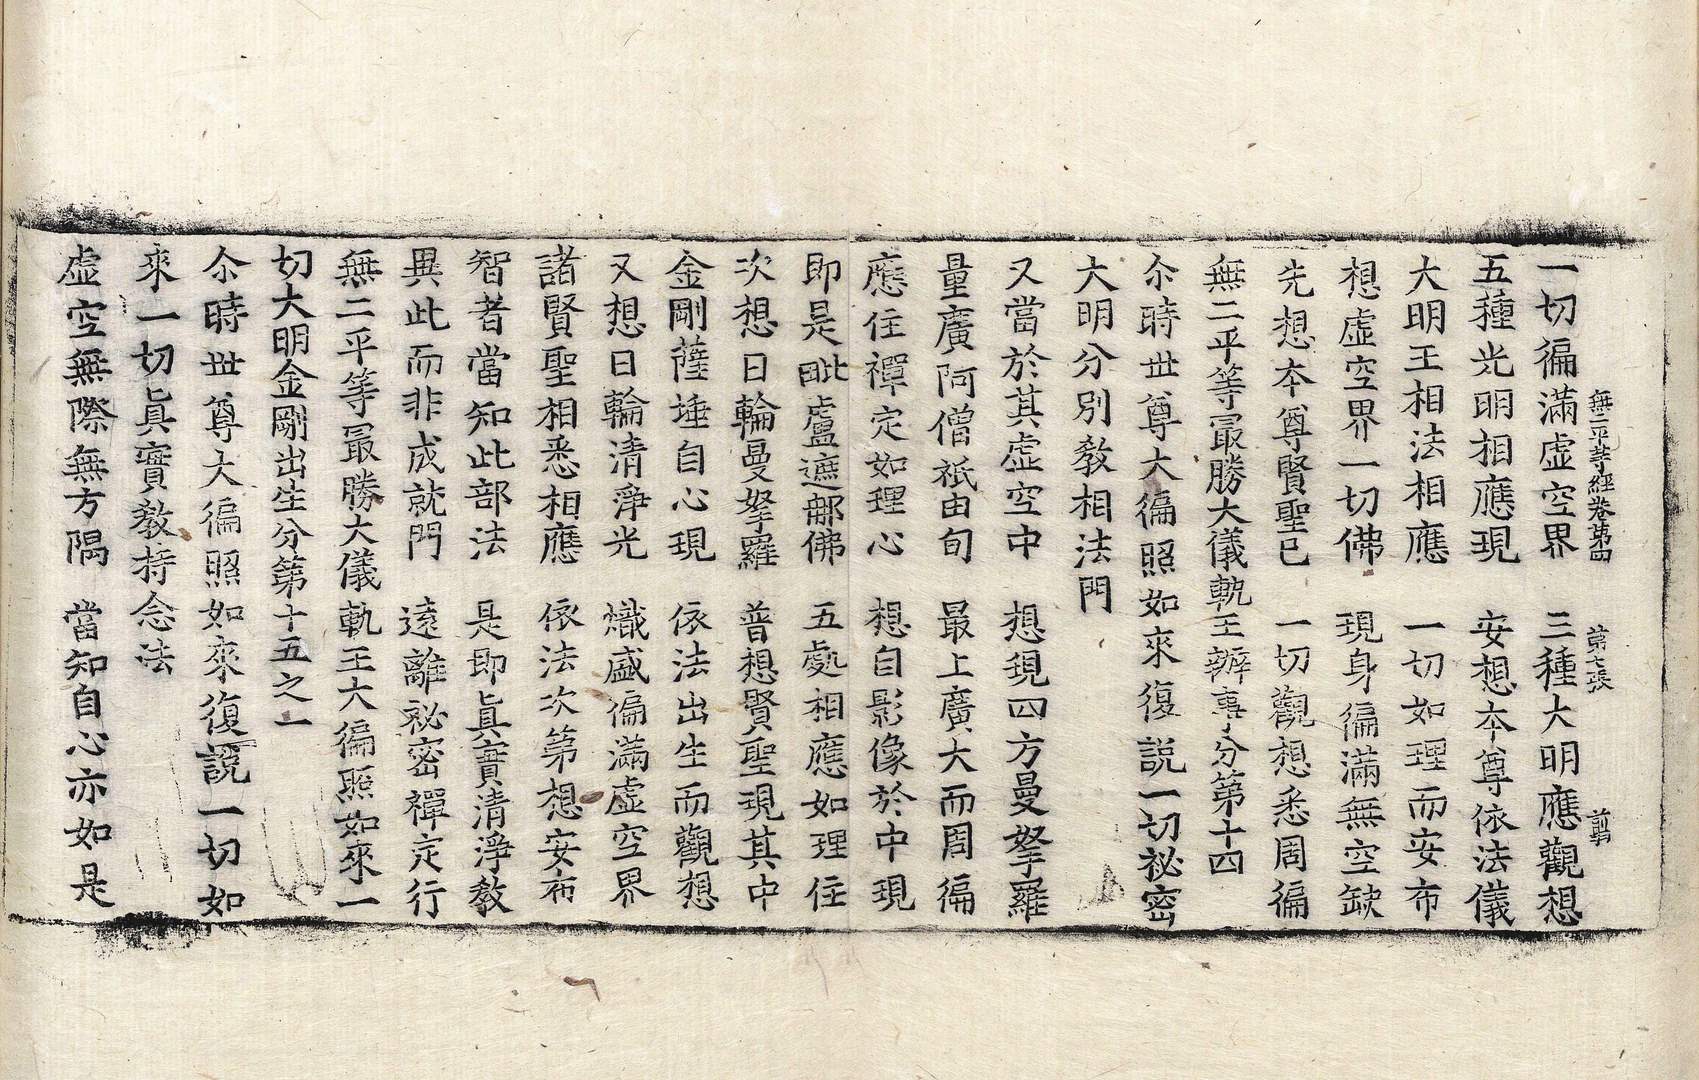 無二平等經卷第四 第七張 前
一切徧滿虛空界 三種大明應觀想
五種光明相應現 安想本尊依法儀
大明王相法相應 一切如理而安布
想虛空界一切佛 現身徧滿無空缺
先想本尊賢聖已 一切觀想悉周徧
無二平等最勝大儀軌王辦事分第十四
尒時世尊大徧照如來復說一切祕密
大明分別教相法門
又當於其虛空中 想現四方曼拏羅
量廣阿僧祇由旬 最上廣大而周徧
應住禪定如理心 想自影像於中現
即是毗盧遮那佛 五處相應如理住
次想日輪曼拏羅 普想賢聖現其中
金剛薩埵自心現 依法出生而觀想
又想日輪清淨光 熾盛徧滿虛空界
諸賢聖相悉相應 依法次第想安布
智者當知此部法 是即眞實清淨教
異此而非成就門 遠離祕密禪定行
無二平等最勝大儀軌王大徧照如來一
切大明金剛出生分第十五之一
尒時世尊大徧照如來復說一切如
來一切眞實教持念法
虛空無際無方隅 當知自心亦如是